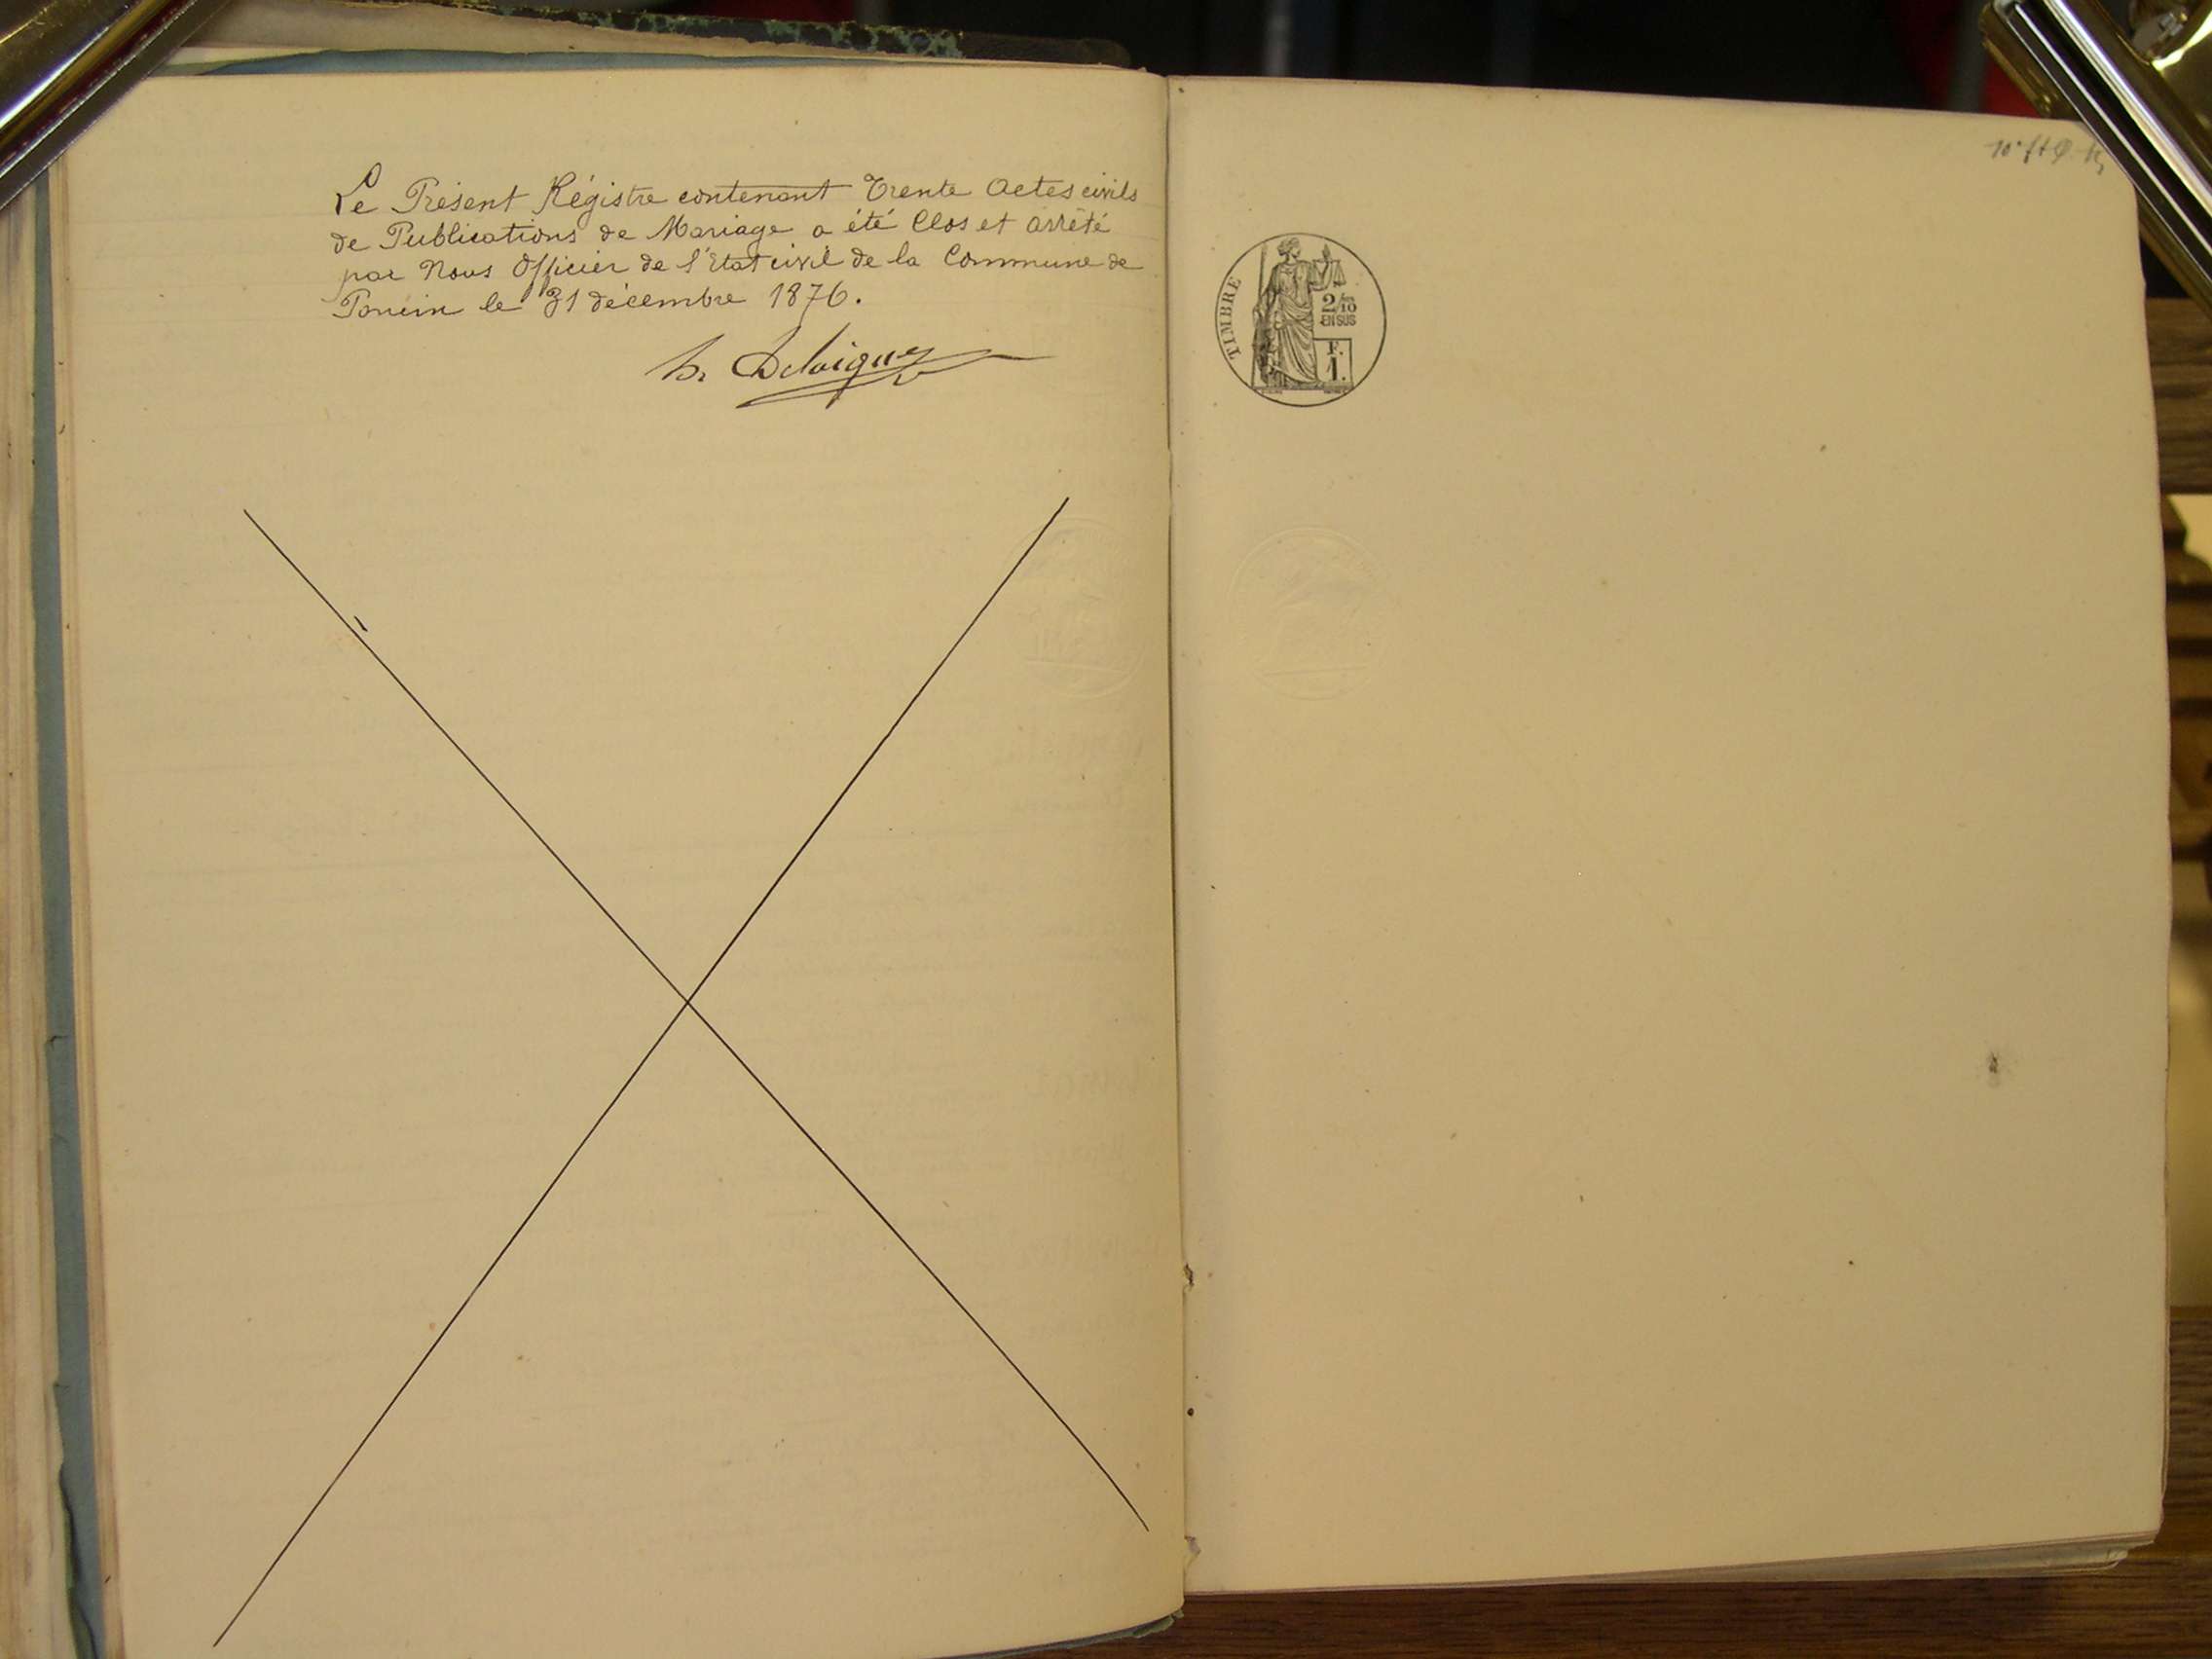 Le Présent Régistre contenant Trente Actes civils
de Publications de Mariage a été Clos et arrêté
par Nous Officier de l'Etat civil de la Commune de
Poncin le 31 décembre 1876.
Delaigue
TIMBRE
2/10
EN SUS
F.
1.